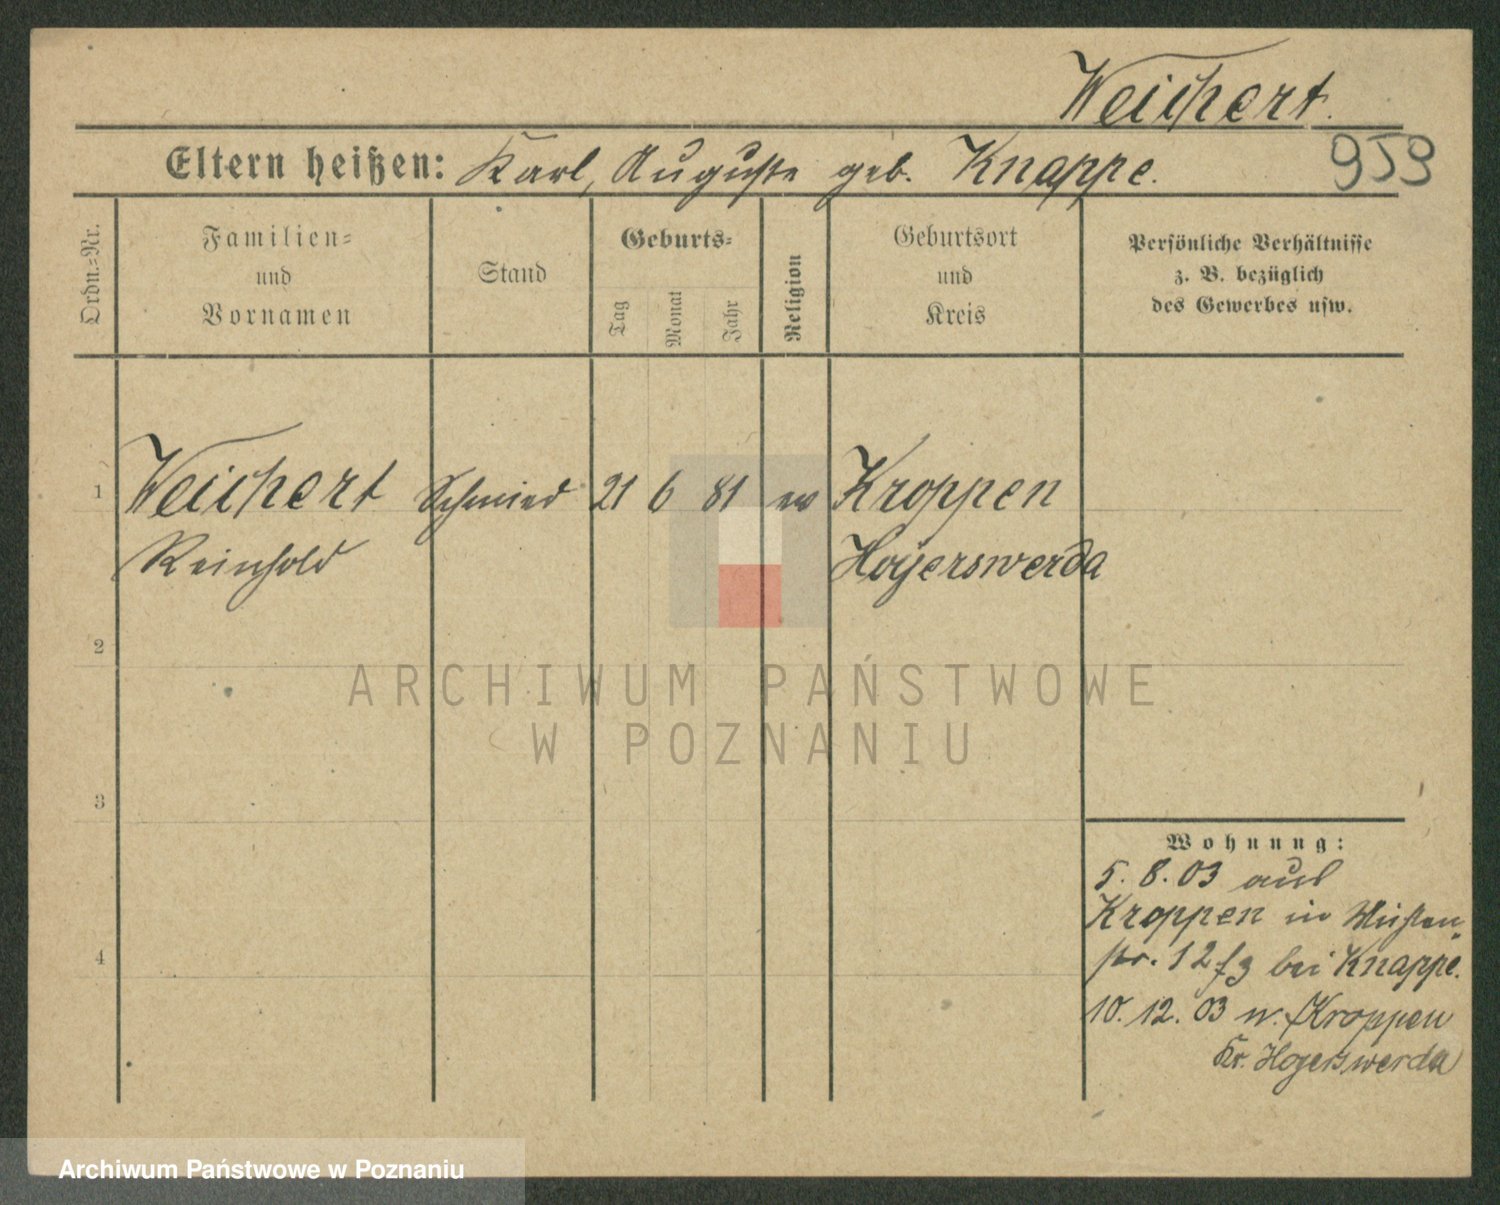 Weichert.
Eltern heißen: Karl, Auguste geb. Knappe.
959
Ordn.=Nr.
Familien=
und
Vornamen
Stand
Geburts=
Tag
Monat
Jahr
Religion
Geburtsort
und
Kreis
Persönliche Verhältnisse
z. B. bezüglich
des Gewerbes usw.
1 Weichert Schmied 21 6 81 ev Kroppen
Reinhold Hoyerswerda
2
ARCHIWUM PAŃSTWOWE
W POZNANIU
3
Wohnung:
5. 8. 03 aus
Kroppen in
4
str. 12 bei Knappe.
10. 12. 03 n. Kroppen
Kr. Hoyerswerda
Archiwum Państwowe w Poznaniu